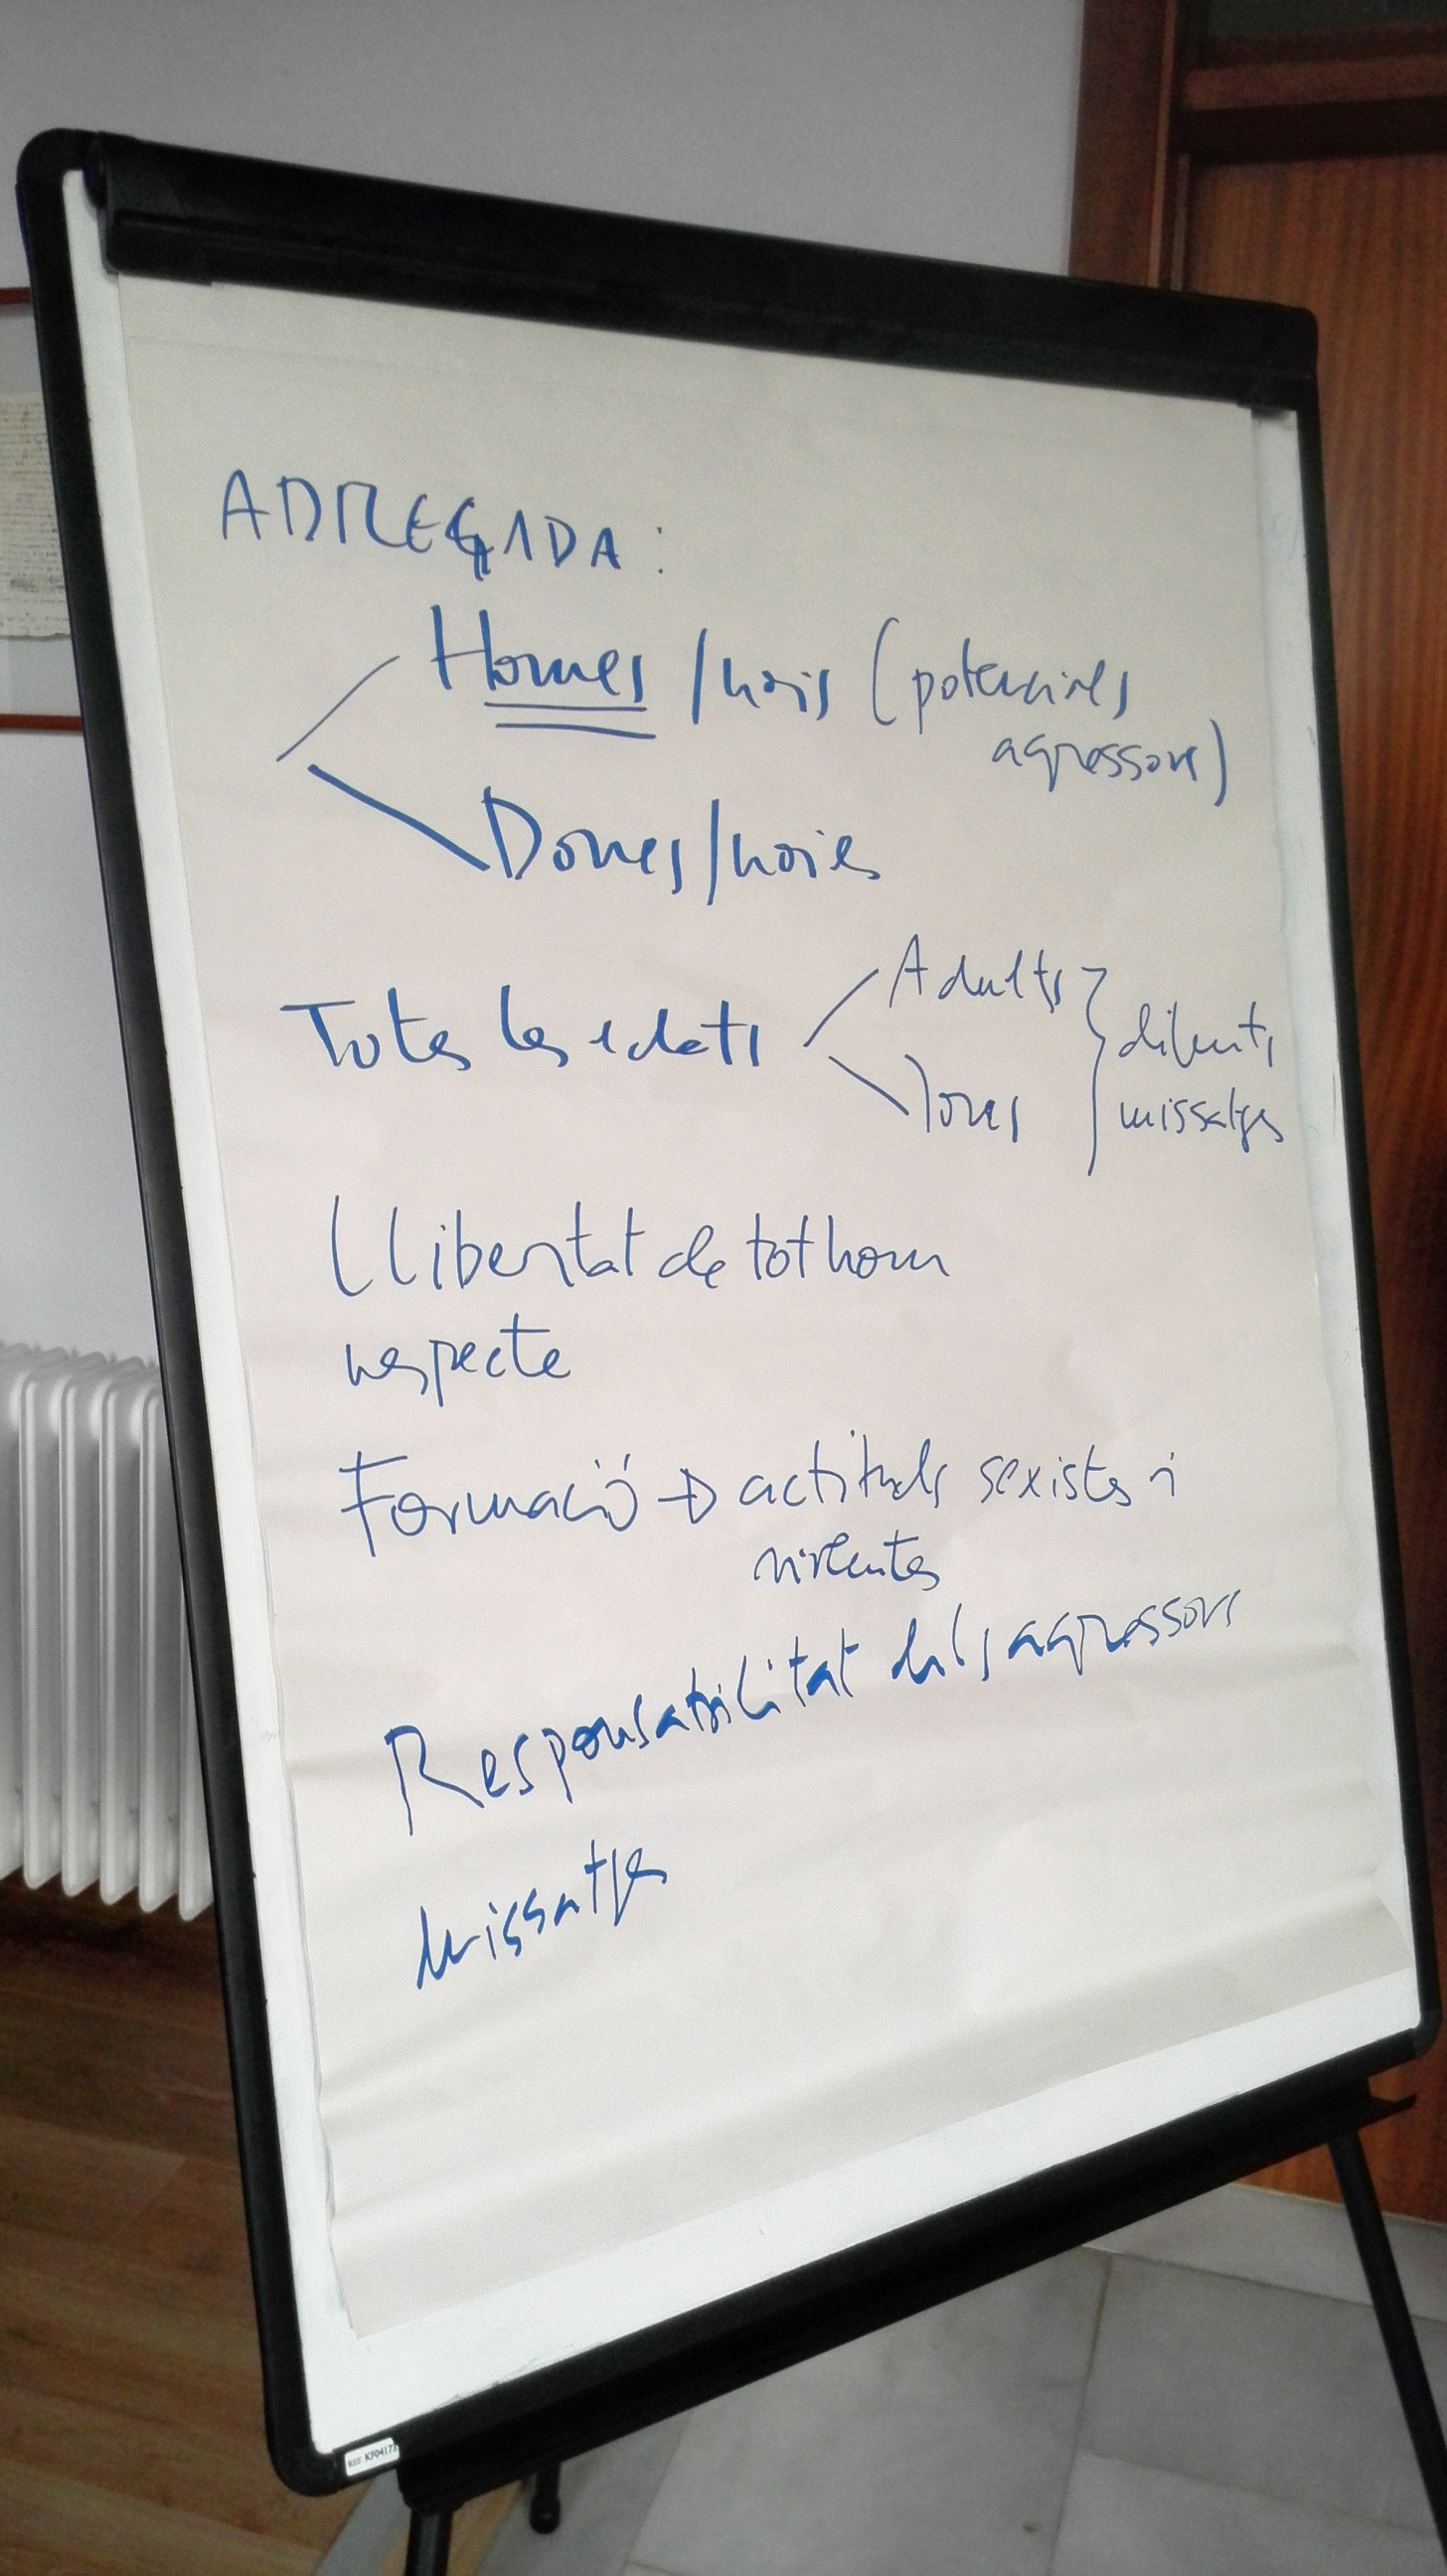 ADREÇADA:
Homes / nois (potencials
agressors)
Dones/noies
Totes les edats
Adults
Joves
diferents
missatges
Llibertat de tothom
respecte
Formació → actituds sexistes i
violentes
Responsabilitat dels agressors
Missatge
REF: KF04173